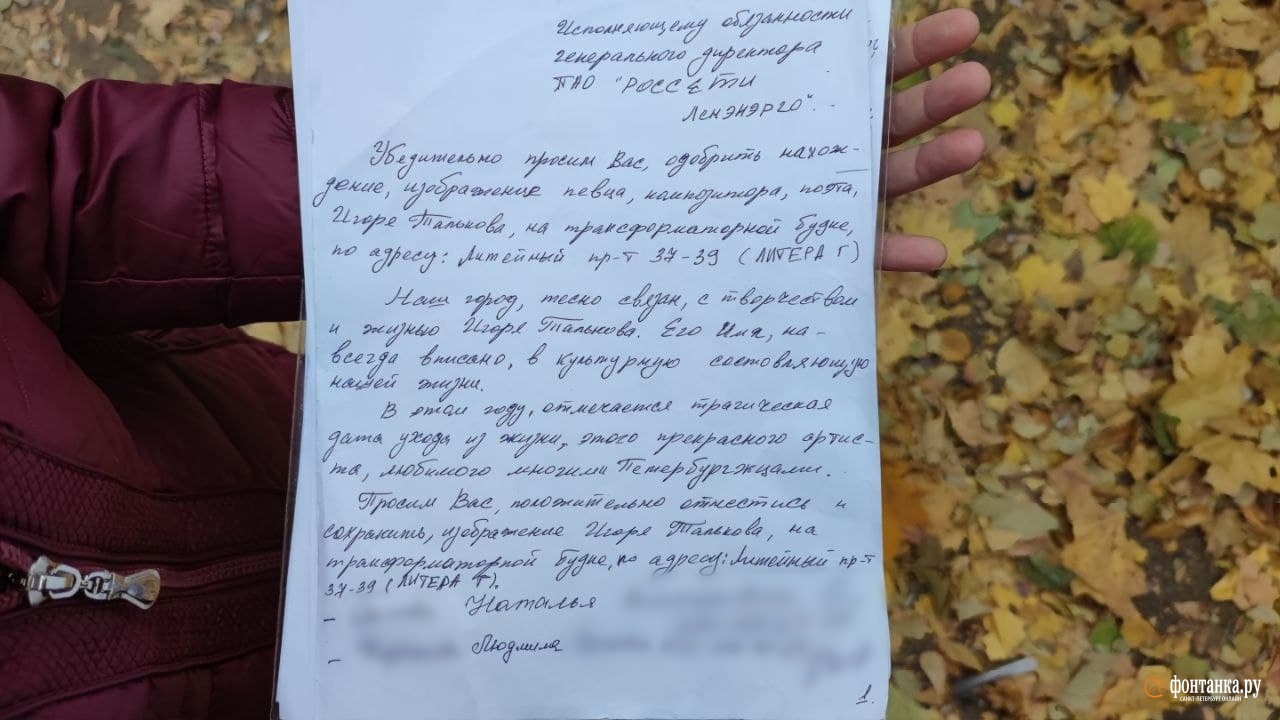 Исполняющему обязанности
генерального директора
ПАО "РОССЕТИ
Ленэнэрго".
Убедительно просим Вас, одобрить нахож-
дение, изображение певца, композитора, поэта,
Игоре Талькова, на трансформаторной будке,
по адресу: Литейный пр-т 37-39 (ЛИТЕРА Г)
Наш город, тесно связан, с творчеством
и жизнью Игоре Талькова. Его Имя, на-
всегда вписано, в культурную составляющую
нашей жизни.
В этом году, отмечается трагическая
дата ухода из жизни, этого прекрасного артис-
та, любимого многими Петербургжцами.
Просим Вас, положительно отнестись и
сохранить, изображение Игоре Талькова, на
трансформаторной будке, по адресу: Литейный пр-т
37-39 (ЛИТЕРА Г).
- Наталья
- Людмила
1.
фонтанка.ру
САНКТ-ПЕТЕРБУРГ ОНЛАЙН